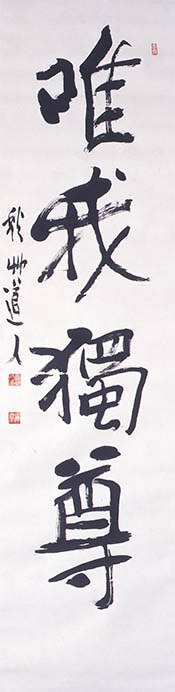 唯我獨尊
秋艸道人